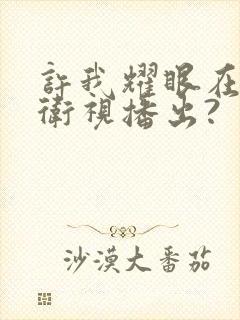 許我耀眼在
衛視播出?
沙漠大番茄